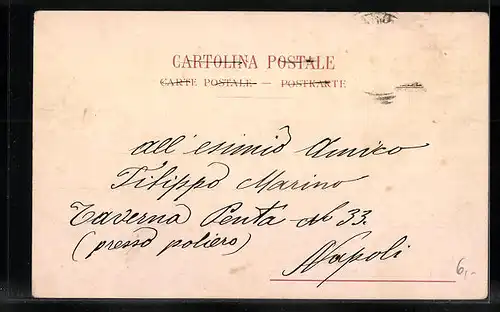 CARTOLINA POSTALE
CARTE POSTALE — POSTKARTE
all' esimio Amico
Filippo Marino
Taverna Penta al 33.
(presso poliero)
Napoli
6,-